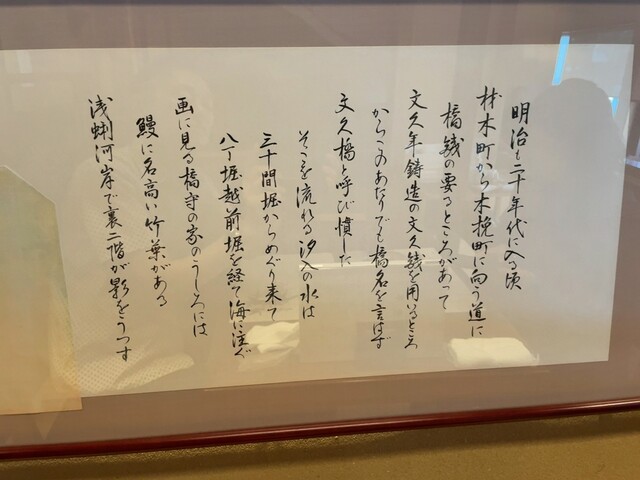 明治も二十年代に入る頃
材木町から木挽町に向う道に
橋銭の要るところがあって
文久年鋳造の文久銭を用いるところ
からこのあたりでも橋名を言はず
文久橋と呼び慣した
そこを流れる汐入の水は
三十間堀からめぐり来て
八丁堀越前堀を経て海に注ぐ
画に見る橋守の家のうしろには
鰻に名高い竹葉がある
浅蜊河岸で裏二階が影をうつす